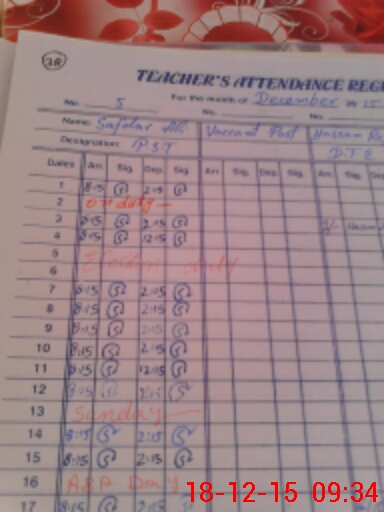 28
TEACHER'S ATTENDANCE REG
For the month of December 2015
No. 5 No. No.
Name Safdar Ali Vaccant Post Hassan Ra
Designation PST DTE
Dates Arr. Sig. Dep. Sig. Arr. Sig. Dep. Sig. Arr. Sig. De
1 8:15 2:15
2 on duty
3 8:15 2:15
4 8:15 12:15
5
6 Election duty
7 8:15 2:15
8 8:15 2:15
9 8:15 2:15
10 8:15 2:15
11 8:15 12:15
12 8:15 2:15
13 Sunday
14 8:15 2:15
15 8:15 2:15
16 Day
17 8:15
18-12-15 09:34